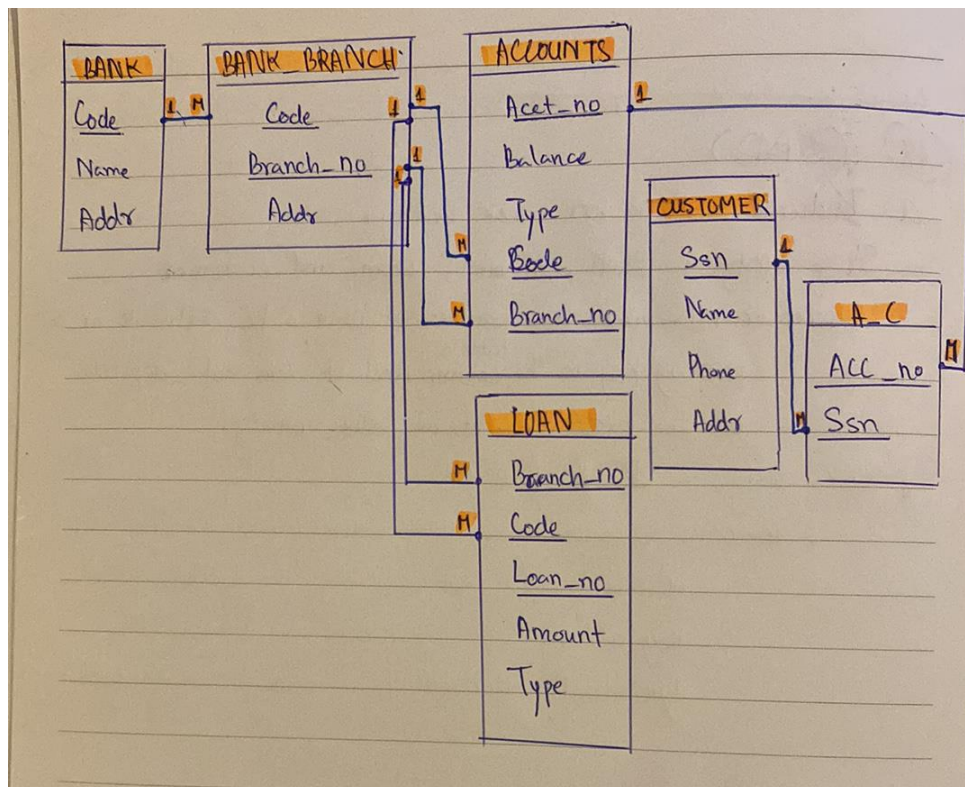 BANK
Code
Name
Addr
1
M
BANK_BRANCH
Code
Branch_no
Addr
1
1
1
1
ACCOUNTS
Acct_no
Balance
Type
Code
Branch_no
1
M
M
CUSTOMER
Ssn
Name
Phone
Addr
1
M
A_C
ACC_no
Ssn
M
LOAN
Branch_no
Code
Loan_no
Amount
Type
M
M